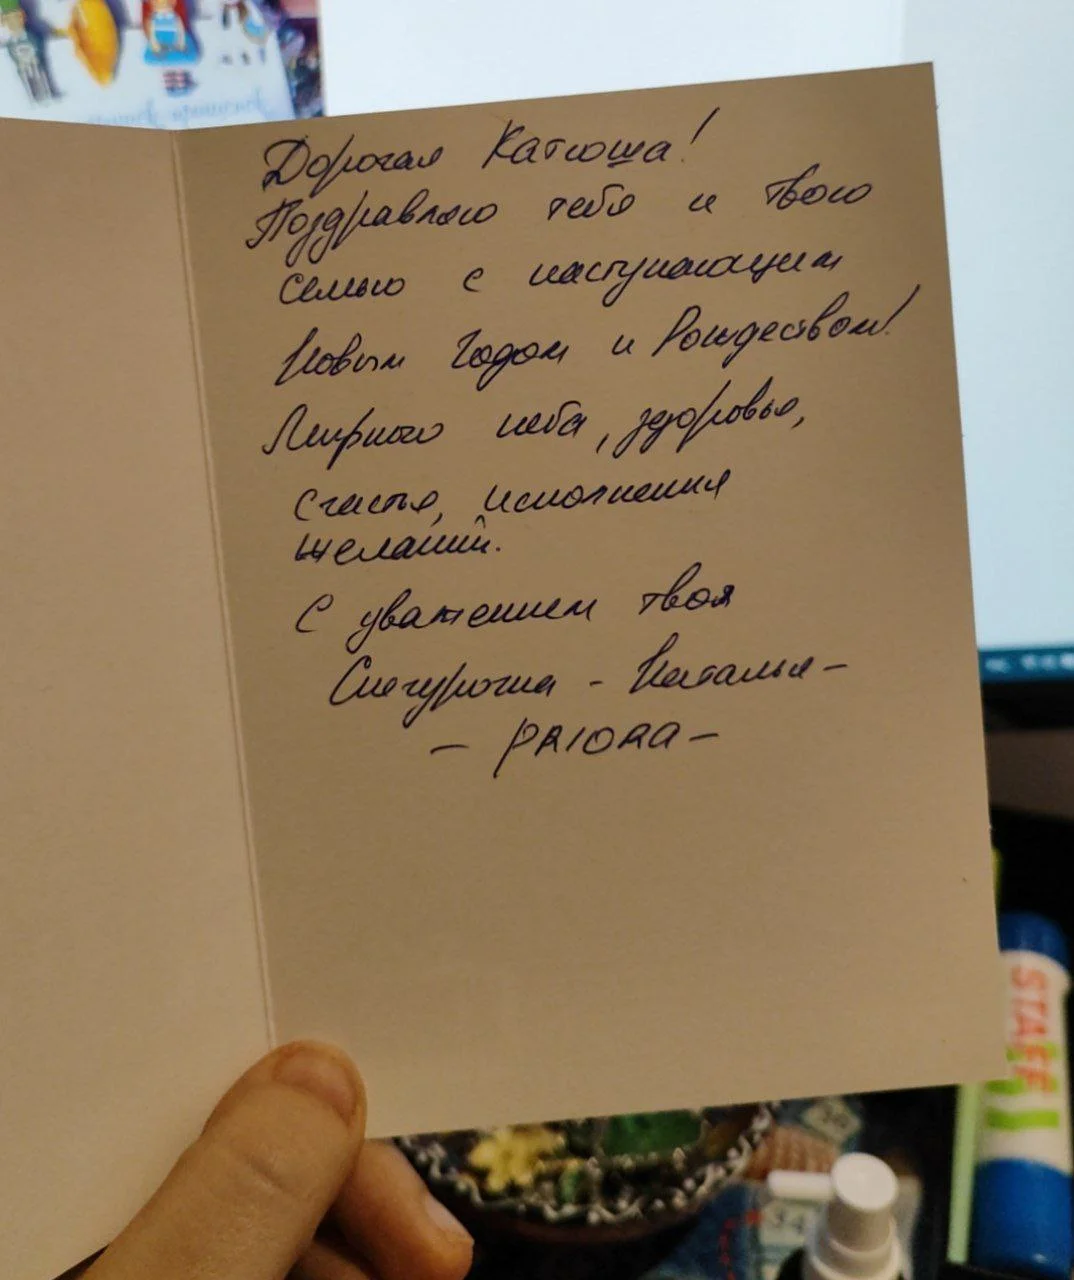 Дорогая Катюша!
Поздравляю тебя и твою
семью с наступающим
Новым Годом и Рождеством!
Мирного неба, здоровья,
счастья, исполнения
желаний.
С уважением твоя
Снегурочка - Наталья -
- PRIORA -
STAFF
34